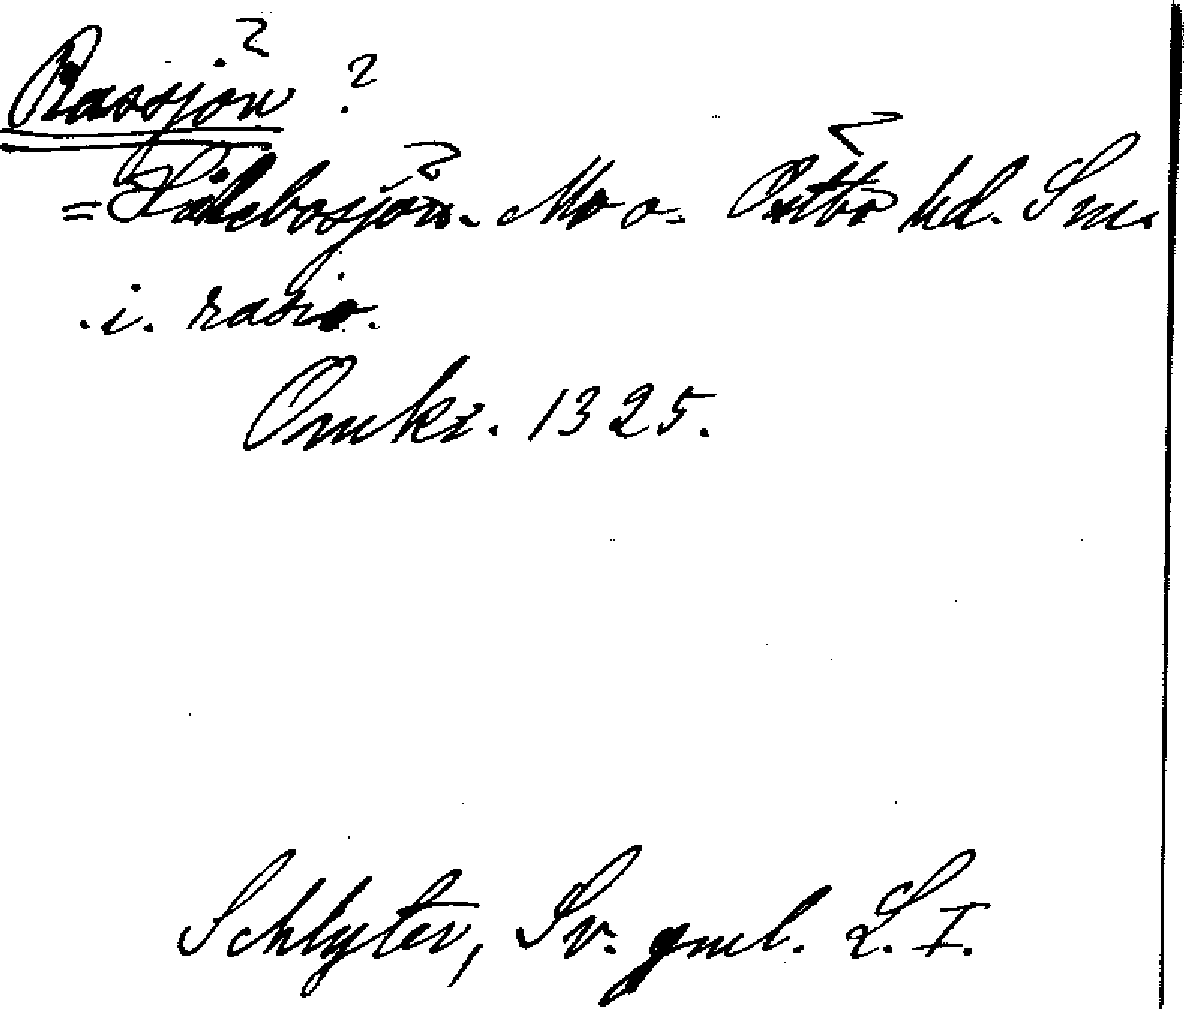 Rassjön ?
= Hålebosjön. Mo o. Östbo hd. Sm.
.i. rasio.
Omkr. 1325.
Schlyter, Sv. gml. L. I.